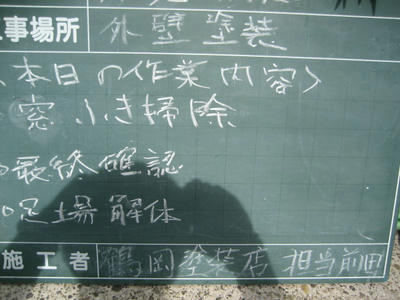 事場所 外壁塗装
本日の作業内容>
窓ふき掃除
最終確認
足場解体
施工者 鶴岡塗装店 担当前田